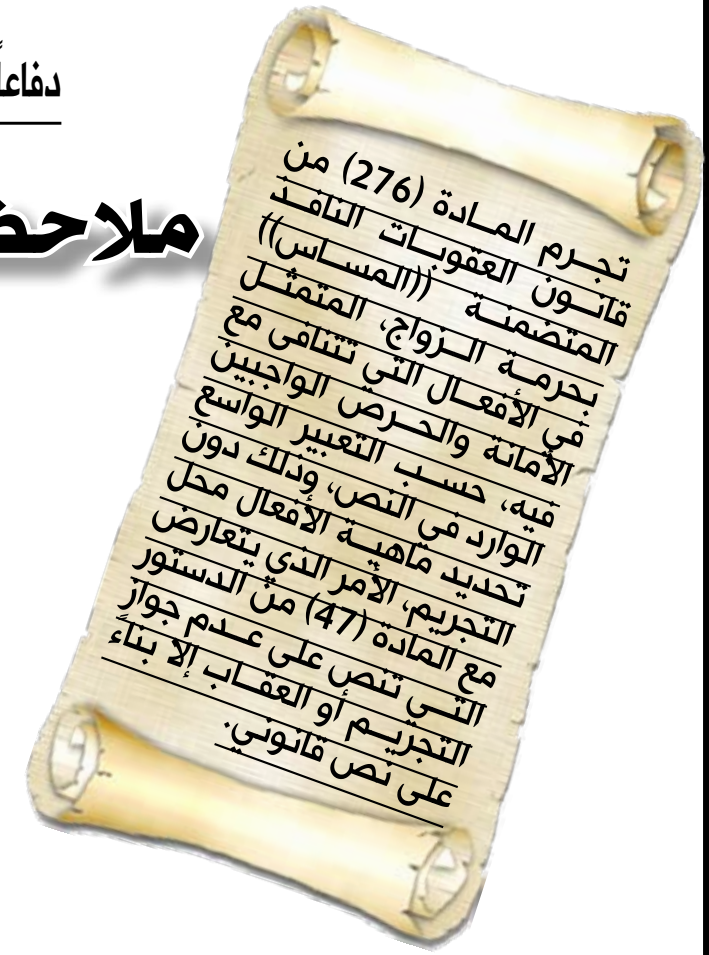 دفاعاً
ملاحظ
تجرم المادة (276) من
قانون العقوبات النافذ
المتضمنة ((المساس))
بحرمة الزواج، المتمثل
في الأفعال التي تتنافى مع
الأمانة والحرص الواجبين
فيه، حسب التعبير الواسع
الوارد في النص، وذلك دون
تحديد ماهية الأفعال محل
التجريم، الأمر الذي يتعارض
مع المادة (47) من الدستور
التي تنص على عدم جواز
التجريم أو العقاب إلا بناءً
على نص قانوني.